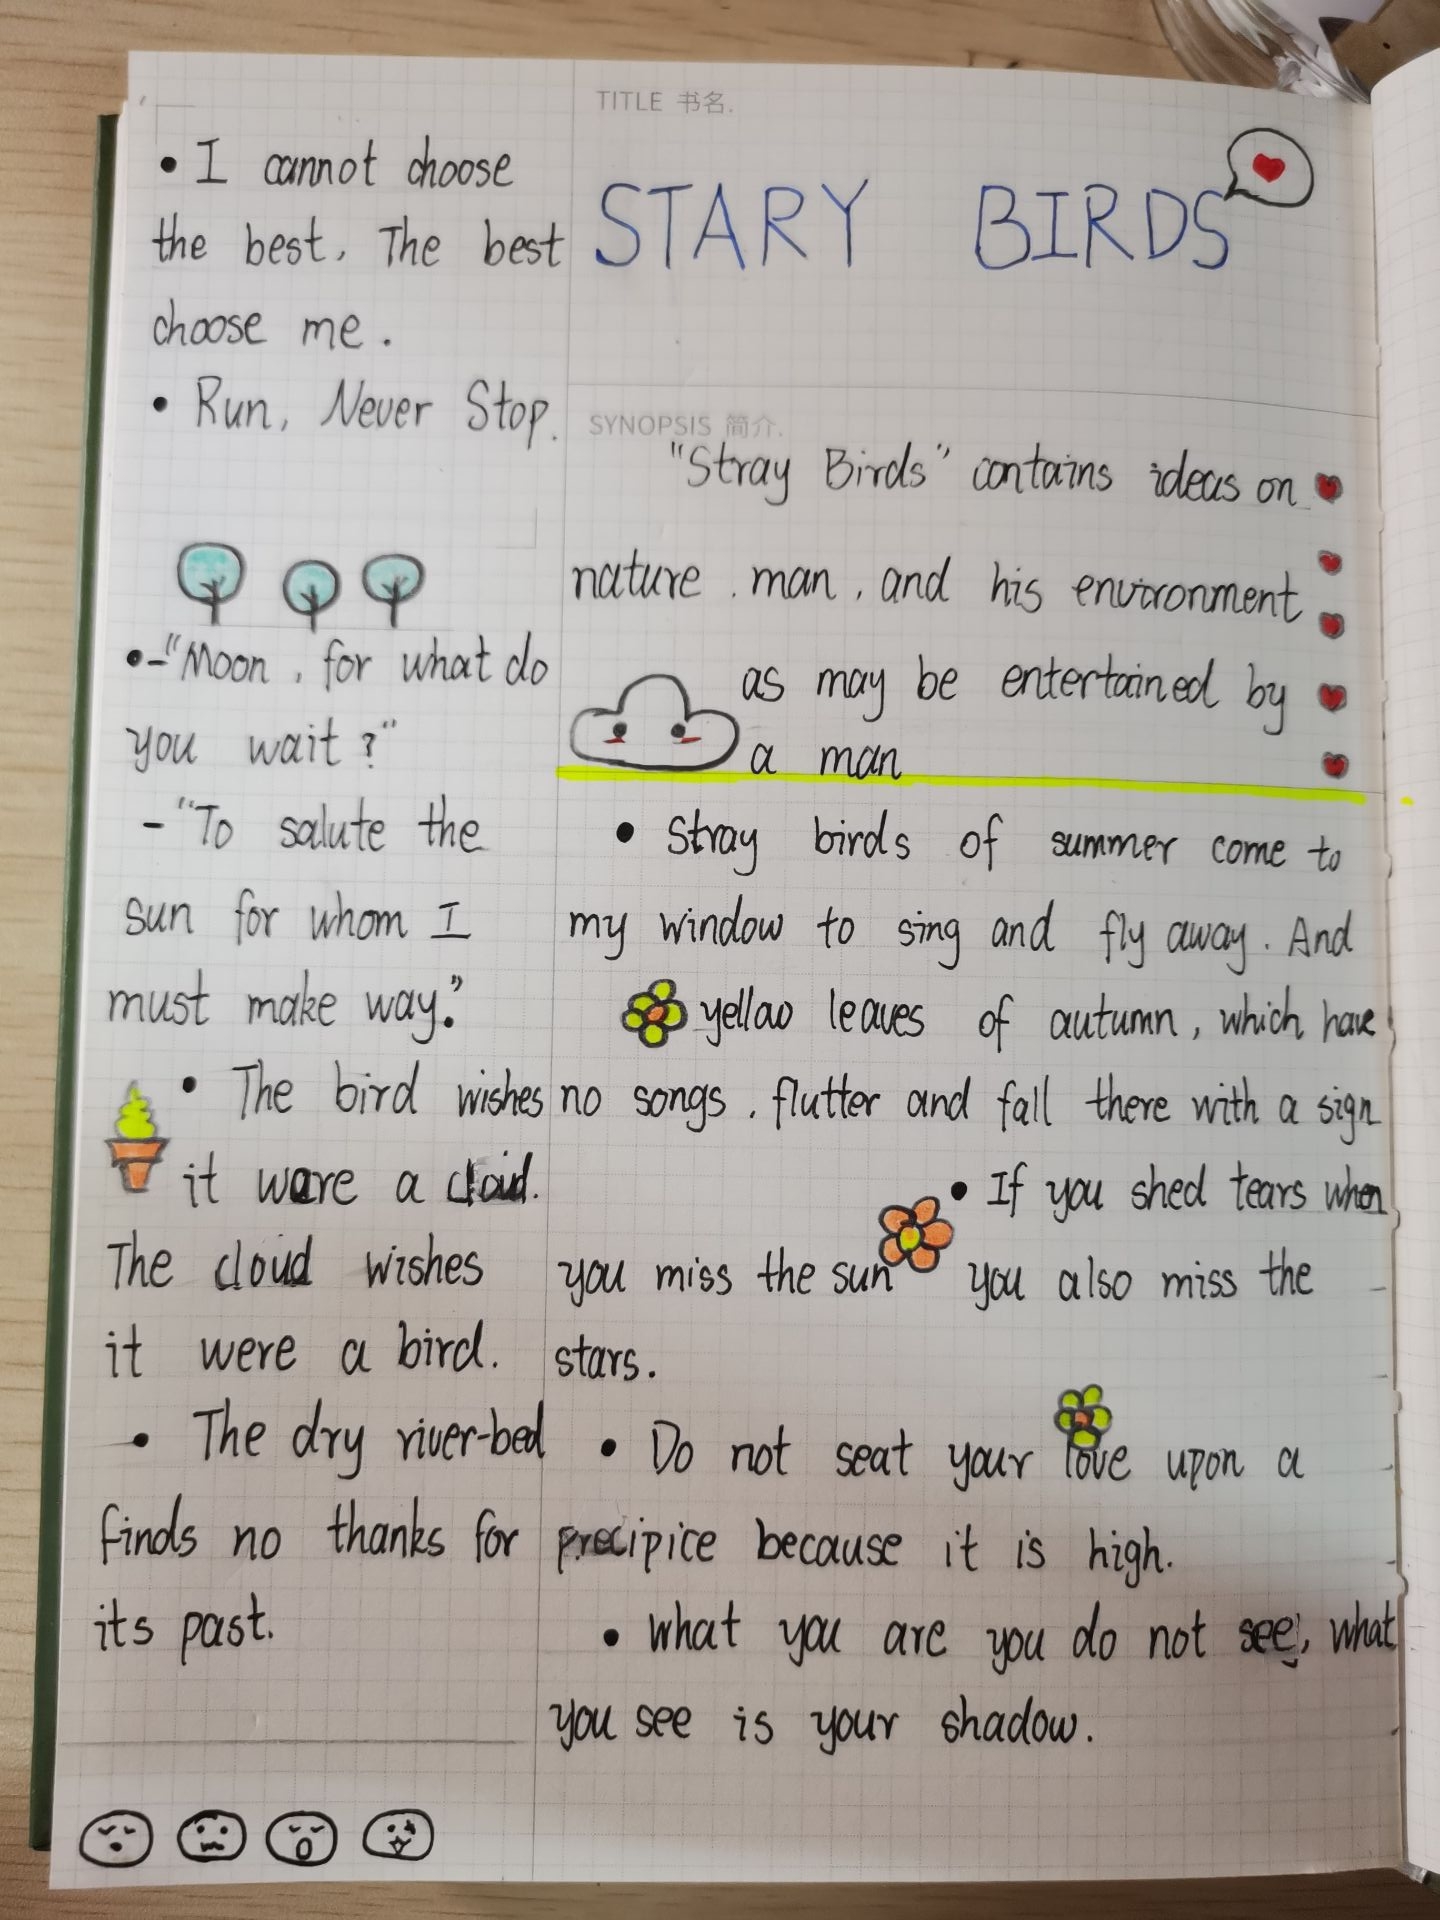 • I cannot choose
the best. The best
choose me.
• Run, Never Stop.
•-"Moon, for what do
you wait?"
-"To salute the
sun for whom I
must make way."
• The bird wishes
it were a cloud.
The cloud wishes
it were a bird.
• The dry river-bed
finds no thanks for
its past.
TITLE 书名.
STARY BIRDS
SYNOPSIS 简介.
"Stray Birds" contains ideas on
nature, man, and his environment
as may be entertained by
a man
• Stray birds of summer come to
my window to sing and fly away. And
yellow leaves of autumn, which have
no songs, flutter and fall there with a sign
• If you shed tears when
you miss the sun you also miss the
stars.
• Do not seat your love upon a
precipice because it is high.
• What you are you do not see, what
you see is your shadow.